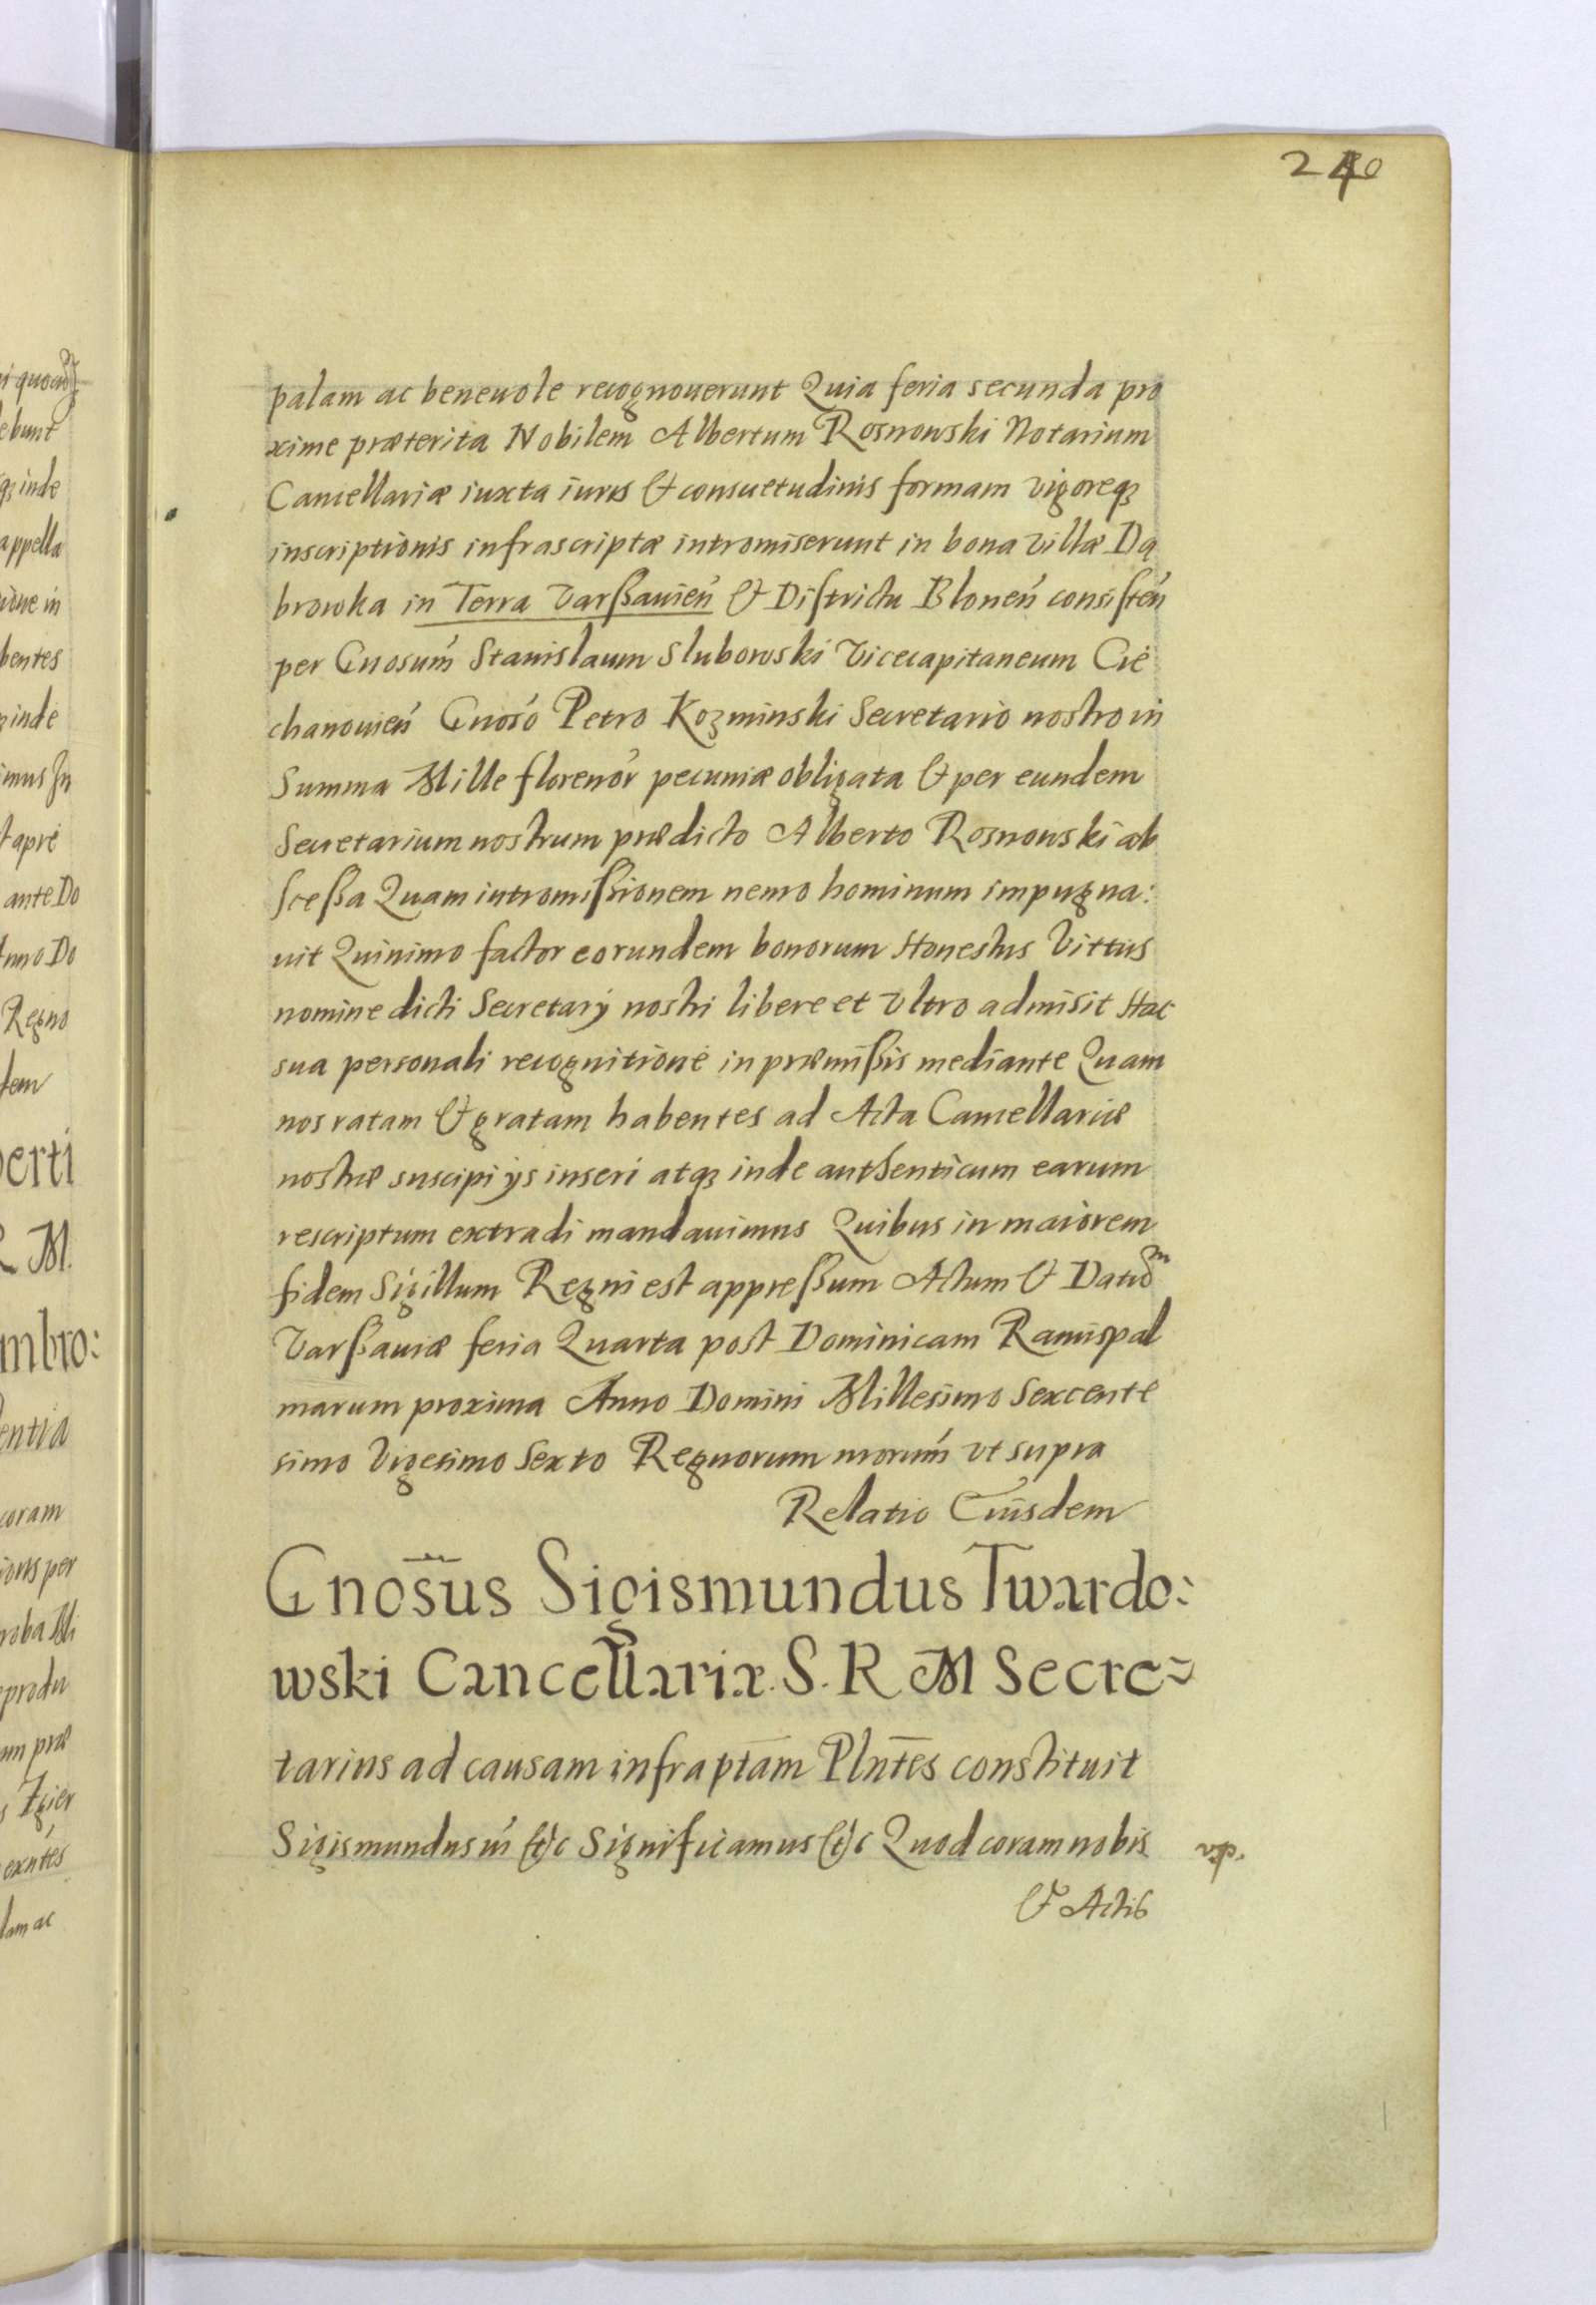 240
palam ac beneuole recognouerunt Quia feria secunda pro
xime præterita Nobilem Albertum Rosnowski Notarium
Cancellariæ iuxta iuris & consuetudinis formam vigoreq3
inscriptionis infrascriptæ intromiserunt in bona villæ Dą
browka in Terra Varßauień & Districtu Bloneń consisteń
per Gnosum̃ Stanislaum Slubowski Vicecapitaneum Cie
chanouień Gnoso Petro Kozminski Secretario nostro in
Summa Mille florenor̃ pecuniæ obligata & per eundem
Secretarium nostrum prædicto Alberto Rosnowski ab
sceßa Quam intromißionem nemo hominum impugna:
uit Quinimo factor eorundem bonorum Honestus Vittus
nomine dicti Secretarÿ nostri libere et vltro admisit Hac
sua personali recognitione in præmißis mediante Quam
nos ratam & gratam habentes ad Acta Cancellariæ
nostræ suscipi ÿs inseri atq3 inde authenticum earum
rescriptum extradi mandauimus Quibus in maiorem
fidem Sigillum Regni est appreßum Actum & Datum
Varßauiæ feria Quarta post Dominicam Ramispal
marum proxima Anno Domini Millesimo Sexcente
simo Vigesimo Sexto Regnorum nrorum̃ vt supra
Relatio Eiusdem
Gnosus Sigismundus Twardo:
wski Cancellariæ. S. R M Secre-
tarius ad causam infraptam Plntes constituit
Sigismundus iii &c Significamus &c Quod coram nobis
& Actis